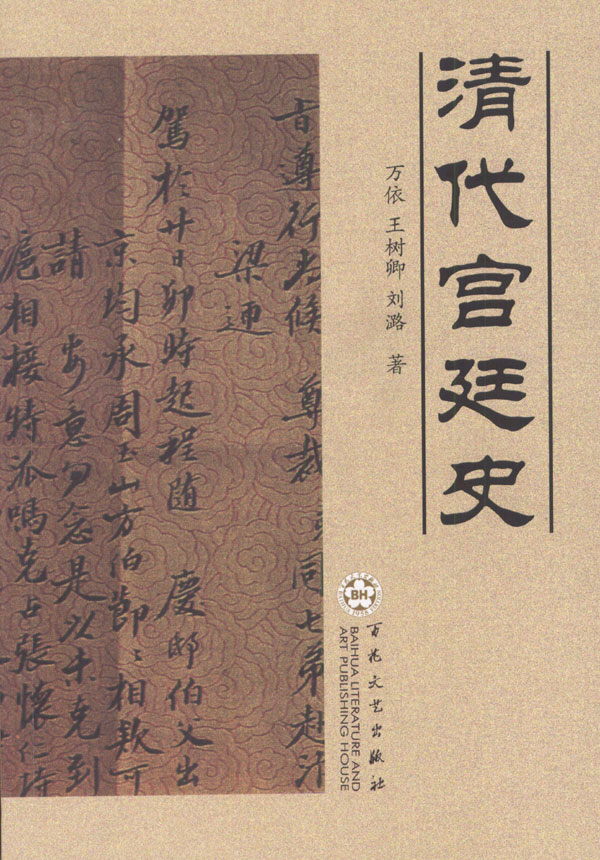 清代宫廷史
万依 王树卿 刘潞 著
旨遵行与候 尊裁 同七弟赴
梁迎
駕於廿日卯時起程随 慶邸伯父出
京均承周玉山方伯節ミ相款可
請 安意勿念是以于克到
滬相接特派鳴克占張懷仁
BH
百花文艺出版社
BAIHUA LITERATURE AND
ART PUBLISHING HOUSE